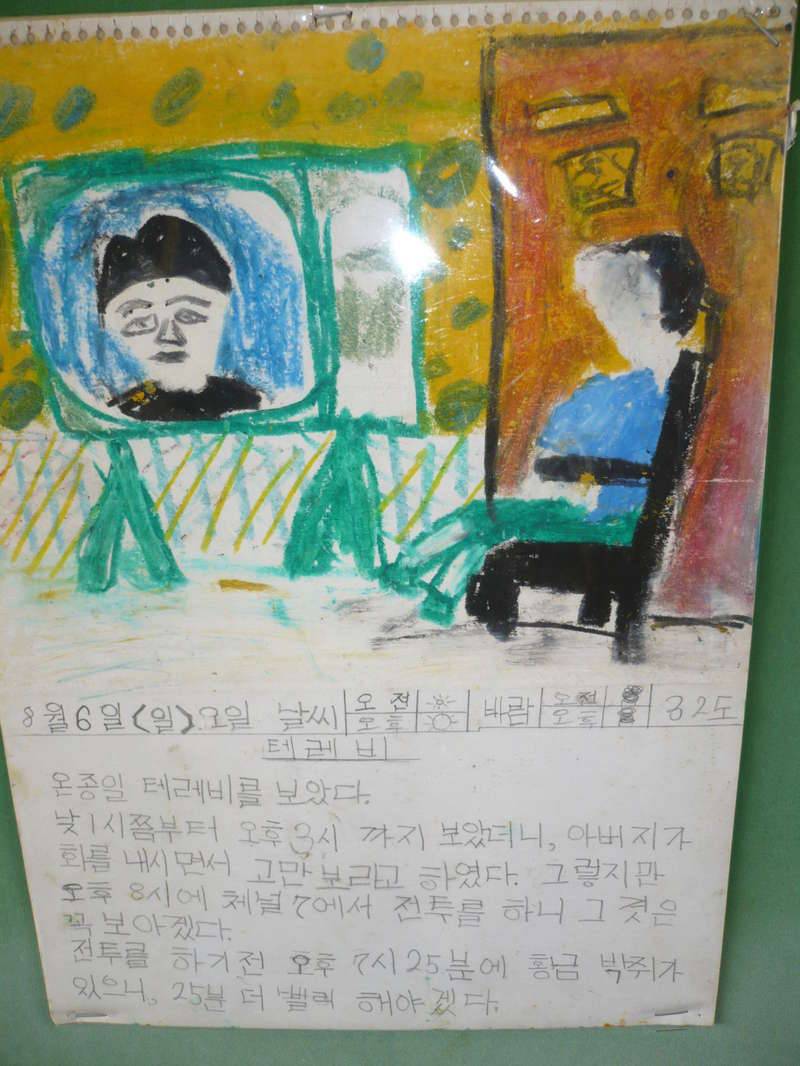 8월 6일 (일) 요일 날씨 오전 오후 바람 오전 오후 32도
테레비
온종일 테레비를 보았다.
낮 1시쯤부터 오후 3시 까지 보았더니, 아버지가
화를 내시면서 고만 보라고 하였다. 그렇지만
오후 8시에 체널 7에서 전투를 하니 그 것은
꼭 보아겠다.
전투를 하기전 오후 7시 25분에 황금 박쥐가
있으니, 25분 더 빨리 해야 겠다.